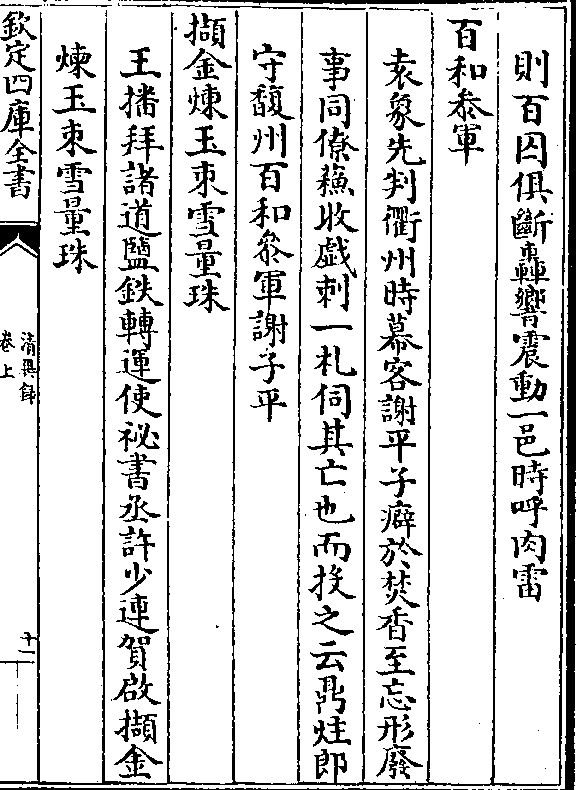 則百囚俱斷轟響震動一邑時呼肉雷
百和叅軍
袁象先判衢州時幕客謝平子癖於焚香至忘形廢
事同僚蘓收戯刺一札伺其亡也而投之云鼎炷郎
守馥州百和叅軍謝子平
擷金煉玉束雪量珠
王播拜諸道鹽鉄轉運使祕書丞許少連賀啟擷金
煉玉束雪量珠
欽定四庫全書
清異録
卷上
十一